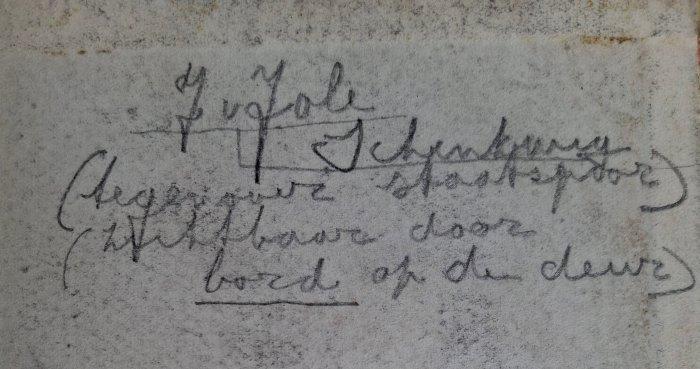 J v Jole
Schenkweg
(tegenover staatsspoor)
(zichtbaar door
bord op de deur)